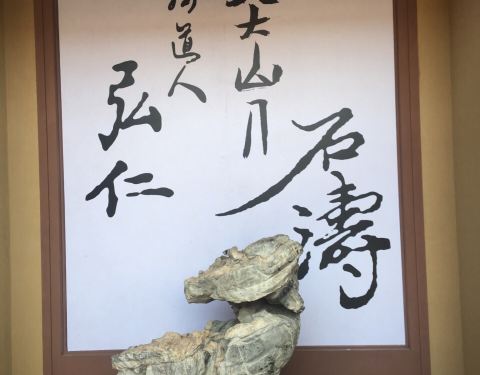 石濤
大山人
道人
弘仁